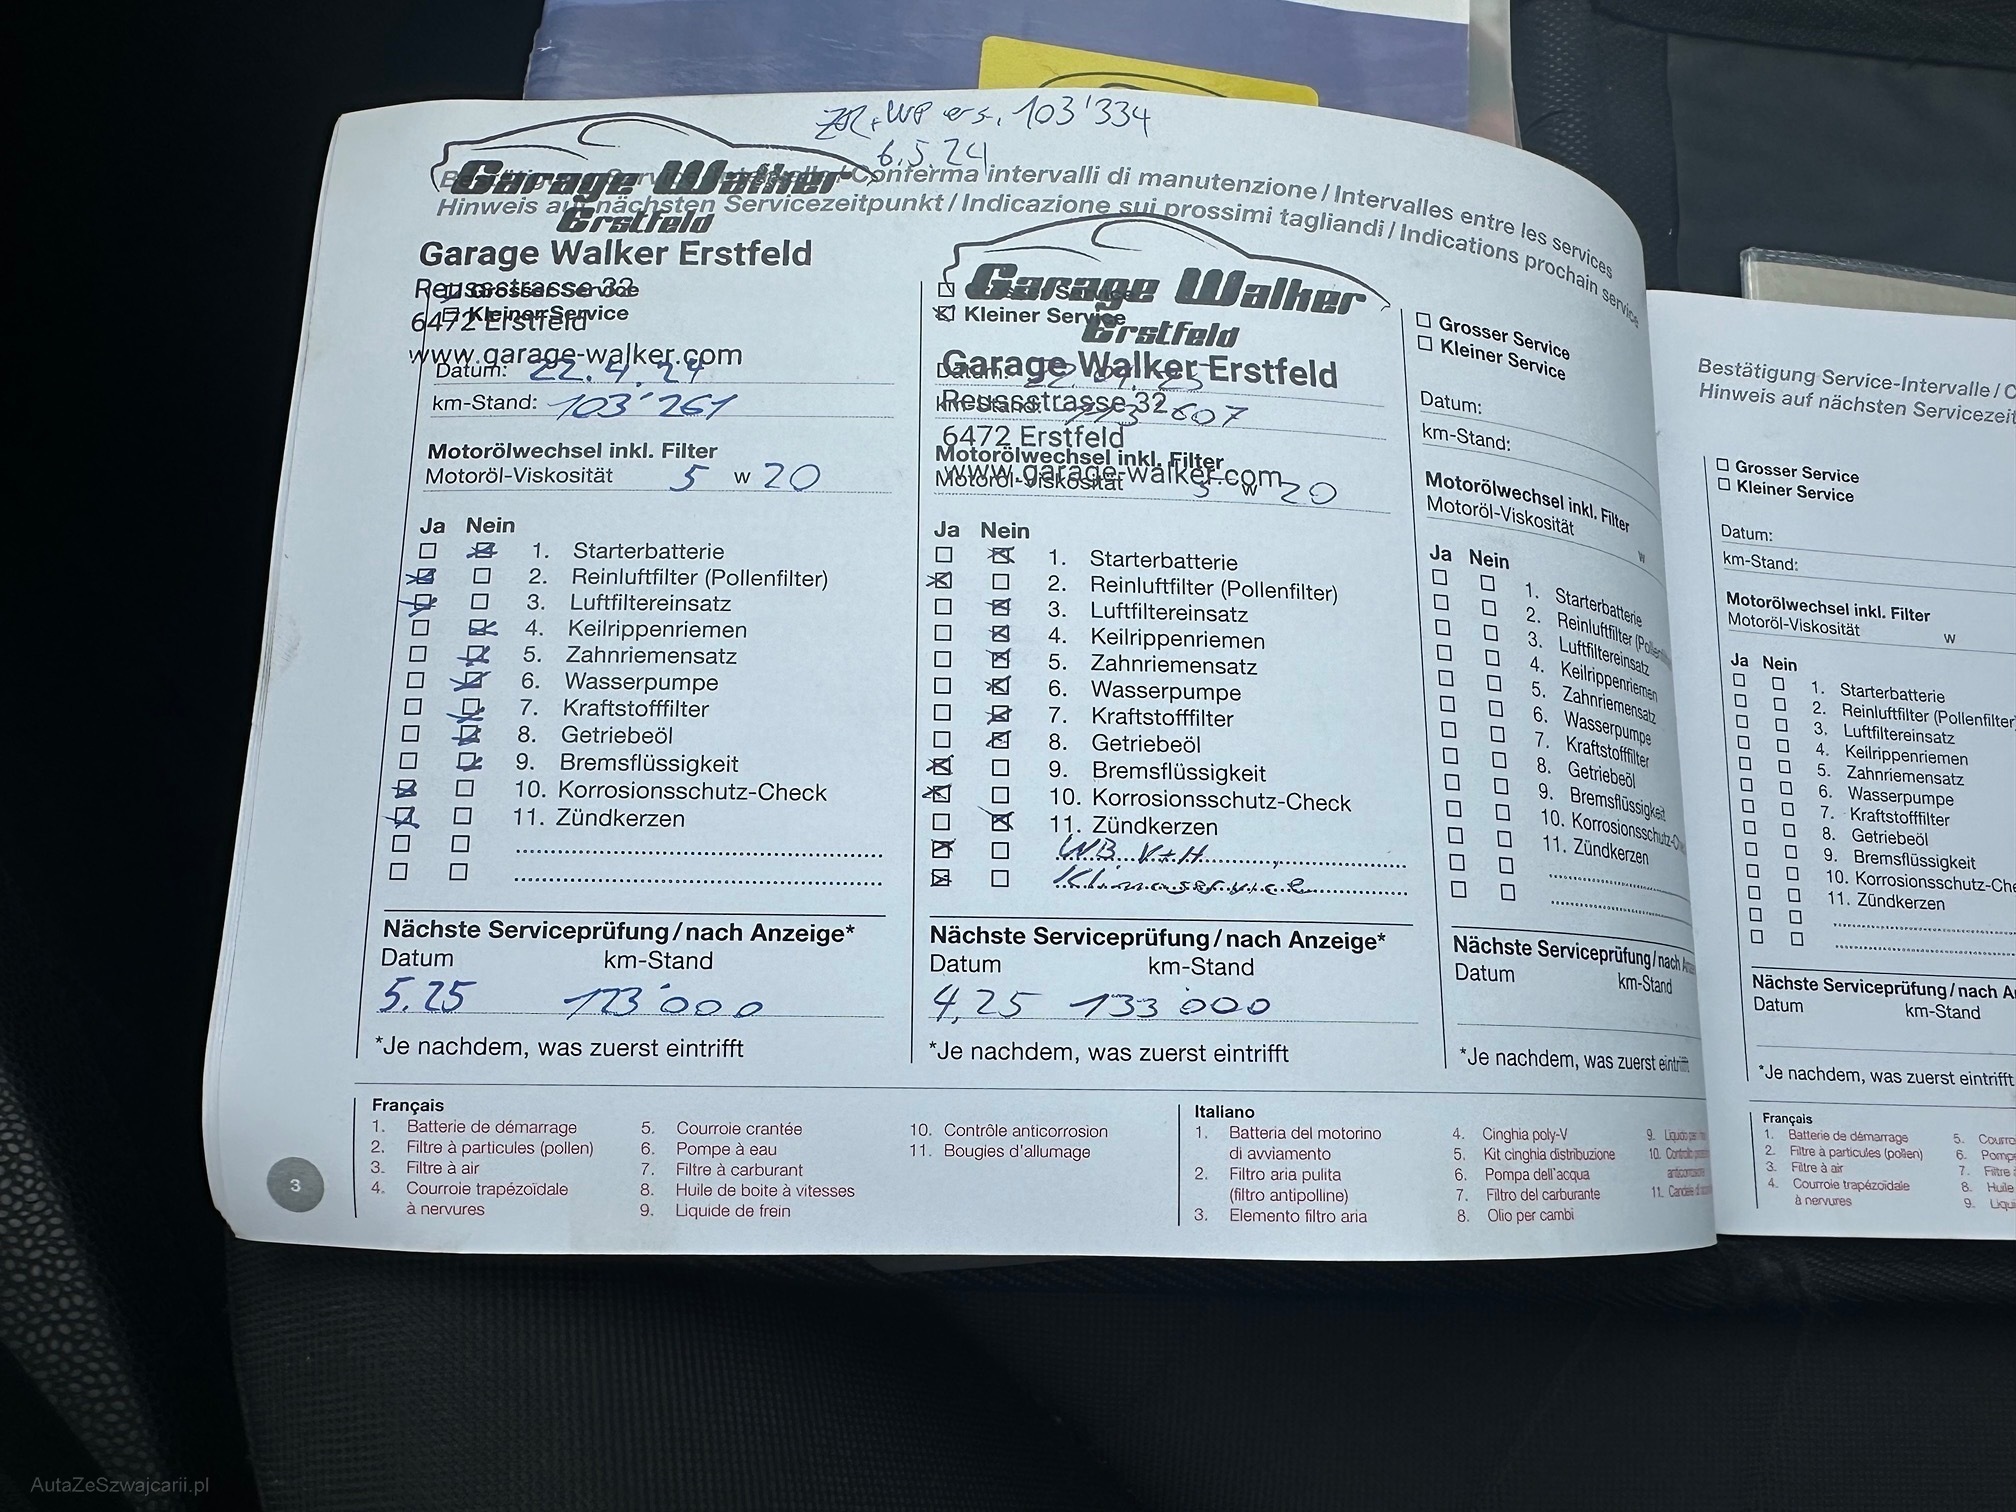 ZR + WP ers. 103'334
6.5.24
Conferma intervalli di manutenzione / Intervalles entre les services
Hinweis auf nächsten Servicezeitpunkt / Indicazione sui prossimi tagliandi / Indications prochain service
Garage Walker
Erstfeld
Garage Walker Erstfeld
Reussstrasse 32
Grosser Service
6472 Erstfeld
Kleiner Service
www.garage-walker.com
Datum: 22.4.24
km-Stand: 103'261
Motorölwechsel inkl. Filter
Motoröl-Viskosität 5 w 20
Ja Nein
1. Starterbatterie
2. Reinluftfilter (Pollenfilter)
3. Luftfiltereinsatz
4. Keilrippenriemen
5. Zahnriemensatz
6. Wasserpumpe
7. Kraftstofffilter
8. Getriebeöl
9. Bremsflüssigkeit
10. Korrosionsschutz-Check
11. Zündkerzen
Nächste Serviceprüfung / nach Anzeige*
Datum km-Stand
5.25 123'000
*Je nachdem, was zuerst eintrifft
Garage Walker
Erstfeld
Kleiner Service
Garage Walker Erstfeld
Datum:
Reussstrasse 32
km-Stand: 113'607
6472 Erstfeld
Motorölwechsel inkl. Filter
www.garage-walker.com
Motoröl-Viskosität 5 w 20
Ja Nein
1. Starterbatterie
2. Reinluftfilter (Pollenfilter)
3. Luftfiltereinsatz
4. Keilrippenriemen
5. Zahnriemensatz
6. Wasserpumpe
7. Kraftstofffilter
8. Getriebeöl
9. Bremsflüssigkeit
10. Korrosionsschutz-Check
11. Zündkerzen
WB V+H
Klimaservice
Nächste Serviceprüfung / nach Anzeige*
Datum km-Stand
4,25 133'000
*Je nachdem, was zuerst eintrifft
Grosser Service
Kleiner Service
Datum:
km-Stand:
Motorölwechsel inkl. Filter
Motoröl-Viskosität w
Ja Nein
1. Starterbatterie
2. Reinluftfilter
3. Luftfiltereinsatz
4. Keilrippenriemen
5. Zahnriemensatz
6. Wasserpumpe
7. Kraftstofffilter
8. Getriebeöl
9. Bremsflüssigkeit
10. Korrosionsschutz-C
11. Zündkerzen
Nächste Serviceprüfung / nach
Datum km-Stand
*Je nachdem, was zuerst eintrifft
Français
1. Batterie de démarrage
2. Filtre à particules (pollen)
3. Filtre à air
4. Courroie trapézoïdale
à nervures
5. Courroie crantée
6. Pompe à eau
7. Filtre à carburant
8. Huile de boite à vitesses
9. Liquide de frein
10. Contrôle anticorrosion
11. Bougies d'allumage
Italiano
1. Batteria del motorino
di avviamento
2. Filtro aria pulita
(filtro antipolline)
3. Elemento filtro aria
4. Cinghia poly-V
5. Kit cinghia distribuzione
6. Pompa dell'acqua
7. Filtro del carburante
8. Olio per cambi
9. Liquido
10. Controllo
anticorrosione
11. Candele
3
Bestätigung Service-Intervalle / C
Hinweis auf nächsten Servicezeit
Grosser Service
Kleiner Service
Datum:
km-Stand:
Motorölwechsel inkl. Filter
Motoröl-Viskosität w
Ja Nein
1. Starterbatterie
2. Reinluftfilter (Pollenfilter
3. Luftfiltereinsatz
4. Keilrippenriemen
5. Zahnriemensatz
6. Wasserpumpe
7. Kraftstofffilter
8. Getriebeöl
9. Bremsflüssigkeit
10. Korrosionsschutz-Che
11. Zündkerzen
Nächste Serviceprüfung / nach A
Datum km-Stand
*Je nachdem, was zuerst eintrifft
Français
1. Batterie de démarrage
2. Filtre à particules (pollen)
3. Filtre à air
4. Courroie trapézoïdale
à nervures
5. Courro
6. Pompe
7. Filtre
8. Huile
9. Liqui
AutaZeSzwajcarii.pl